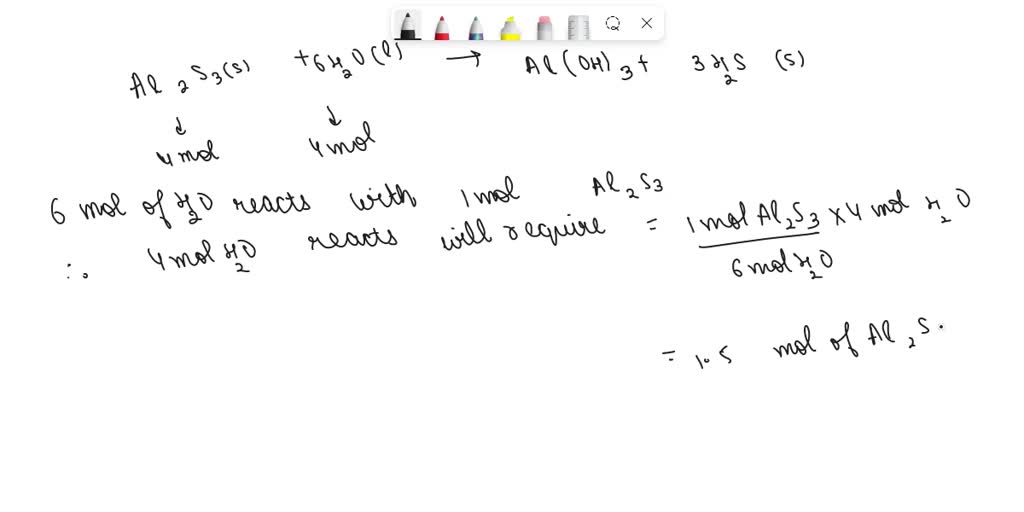 Al2S3(s) + 6H2O(l) → Al(OH)3 + 3H2S (s)
↓ ↓
4mol 4mol
6 mol of H2O reacts with 1mol Al2S3
∴ 4mol H2O reacts will require = 1mol Al2S3 × 4 mol H2O
6mol H2O
= 1.5 mol of Al2S.